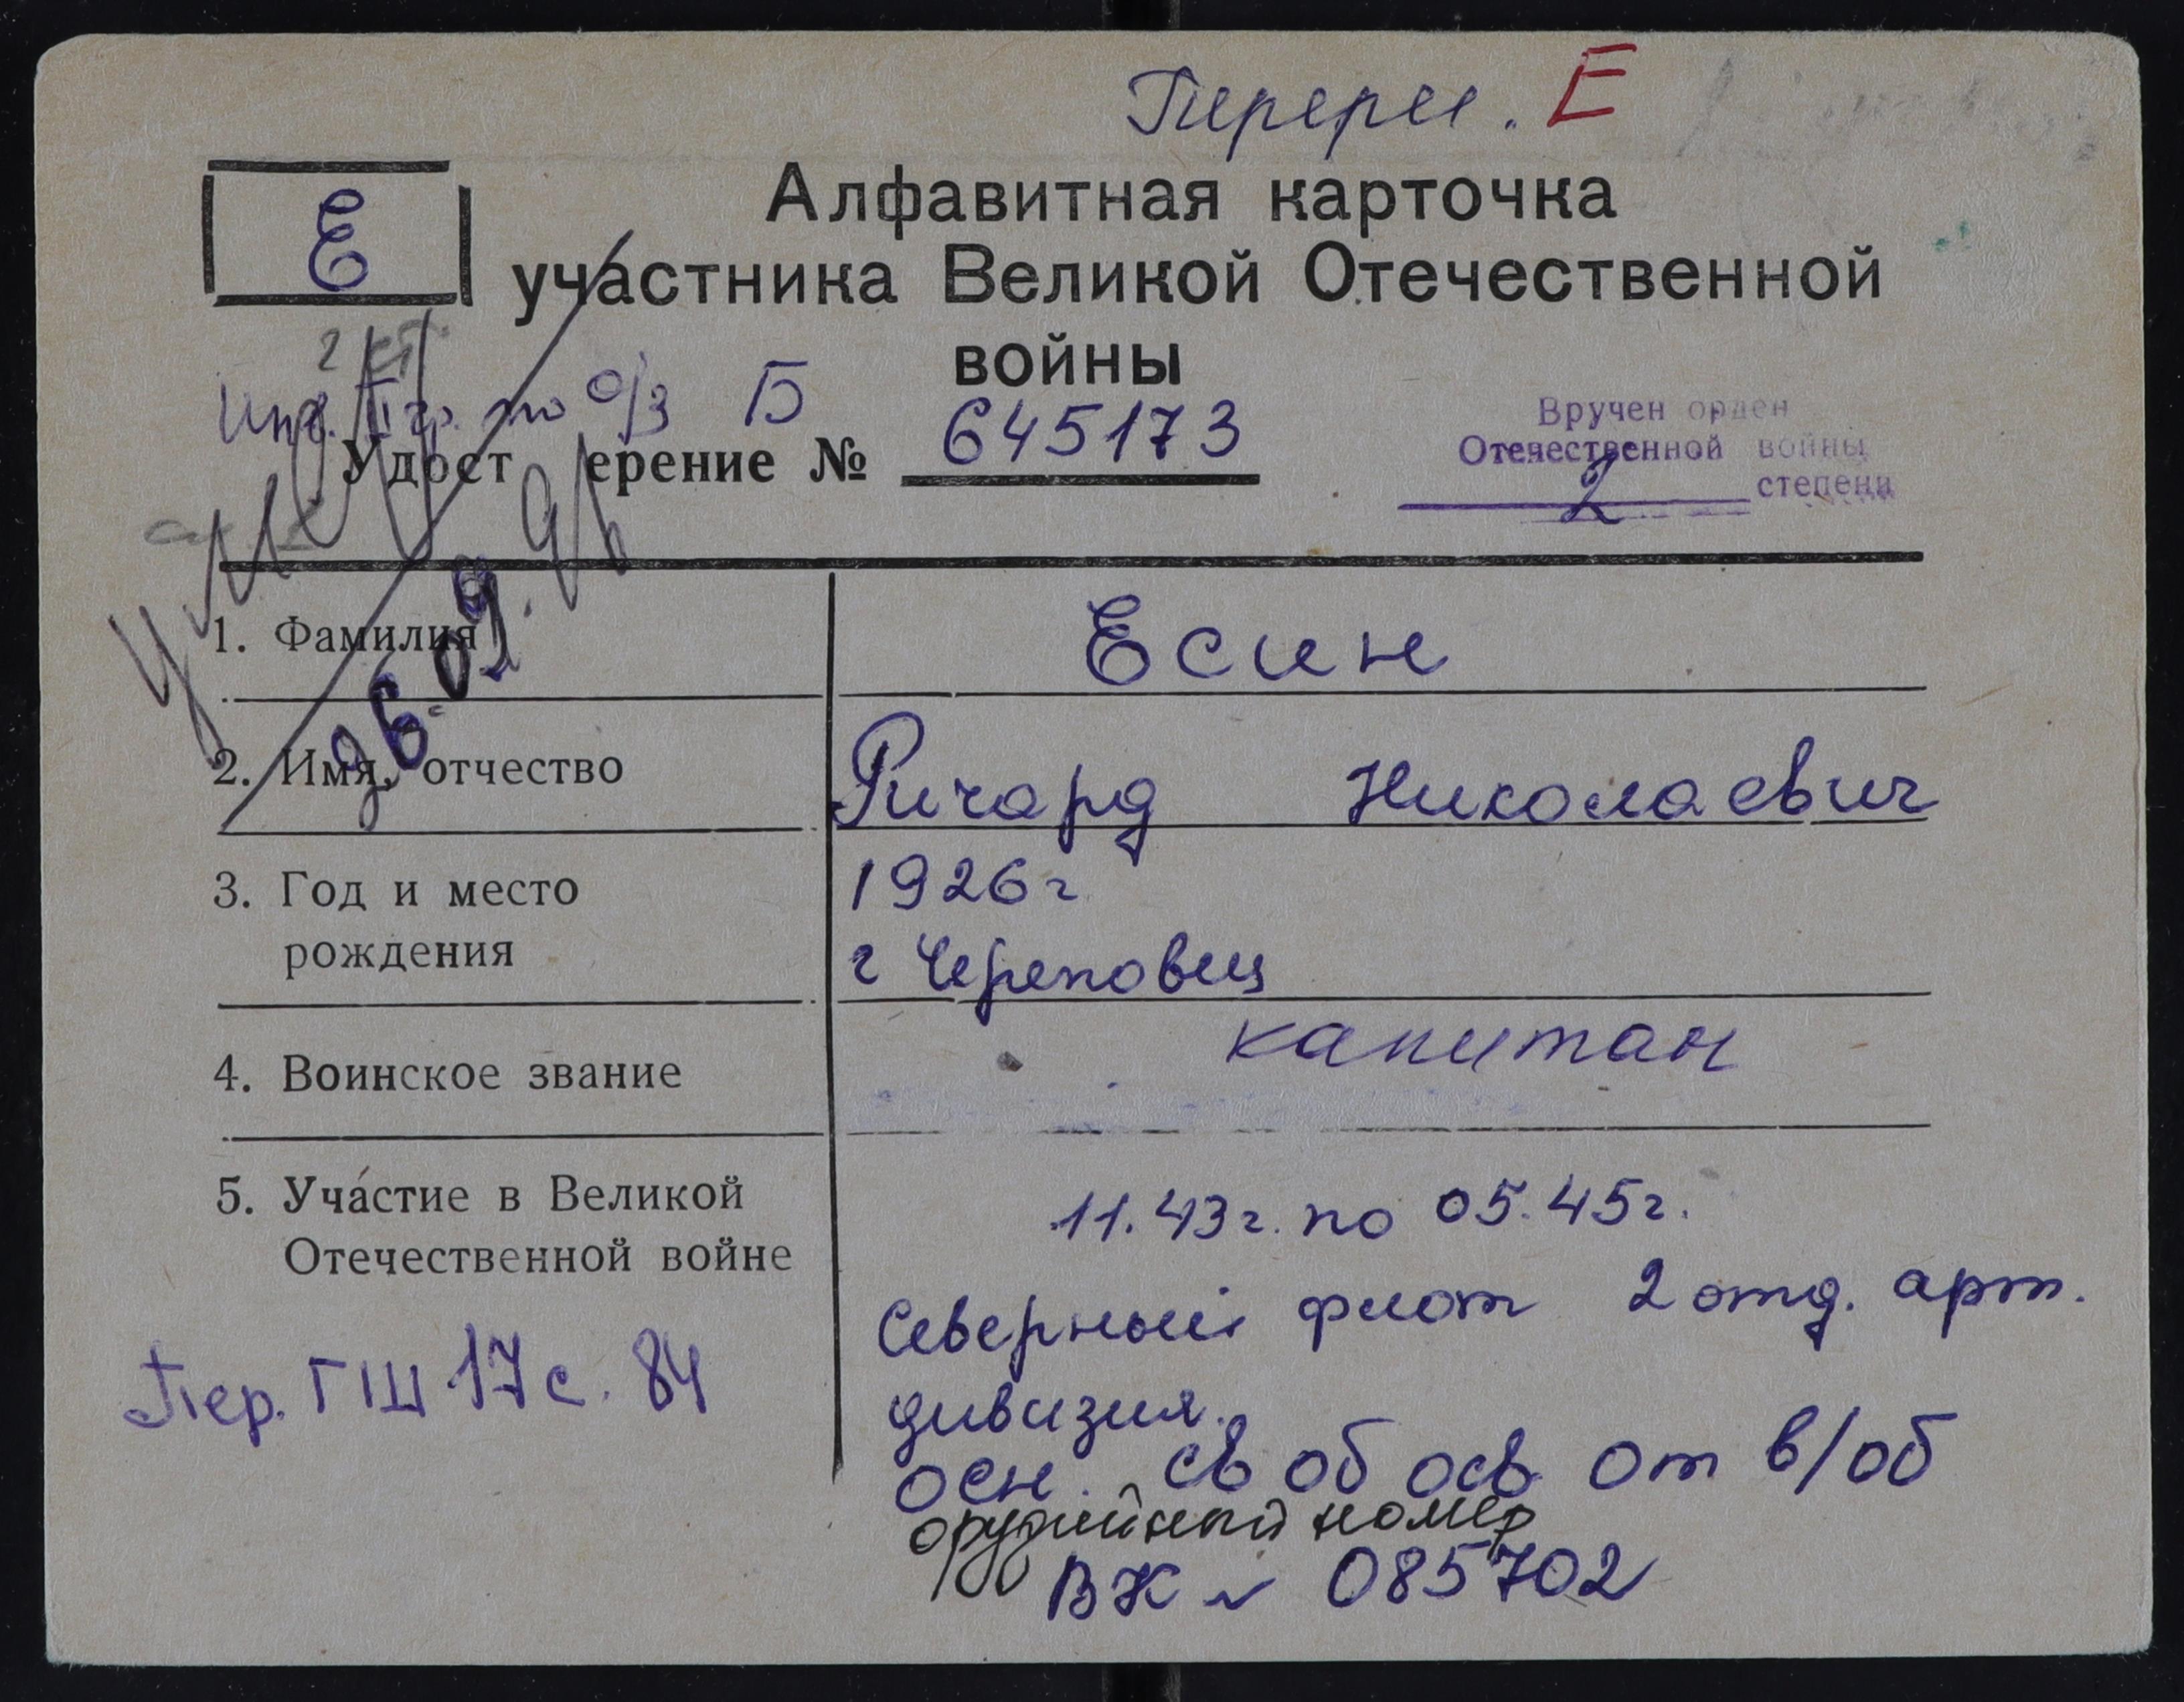 Перерег. Е
Е
Алфавитная карточка
участника Великой Отечественной
войны
2 ст.
Инв. II гр. по о/з Б
Удостоверение № 645173
Вручен орден
Отечественной войны
2 степени
Умер
1. Фамилия Есин
2. Имя, отчество Ричард Николаевич
3. Год и место 1926г
рождения г Череповец
4. Воинское звание капитан
5. Участие в Великой 11.43г. по 05.45г.
Отечественной войне
Северный флот 2 отд. арт.
дивизия.
Пер. ГШ 17 с. 84
осн. св об осв от в/об
орудийный номер
ВК № 085702